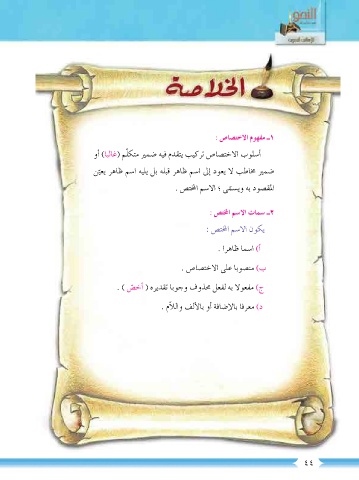 النحو
الخلاصة
١ـ مفهوم الاختصاص :
أسلوب الاختصاص تركيب يتقدم فيه ضمير متكلّم (غالبا) أو
ضمير مخاطب لا يعود إلى اسم ظاهر قبله بل يليه اسم ظاهر يعيّن
المقصود به ويسمّى ؛ الاسم المختص .
٢ـ سمات الاسم المختص :
يكون الاسم المختص :
أ) اسما ظاهرا .
ب) منصوبا على الاختصاص .
ج) مفعولا به لفعل محذوف وجوبا تقديره ( أخصّ ) .
د) معرفا بالإضافة أو بالألف واللاّم .
٤٤